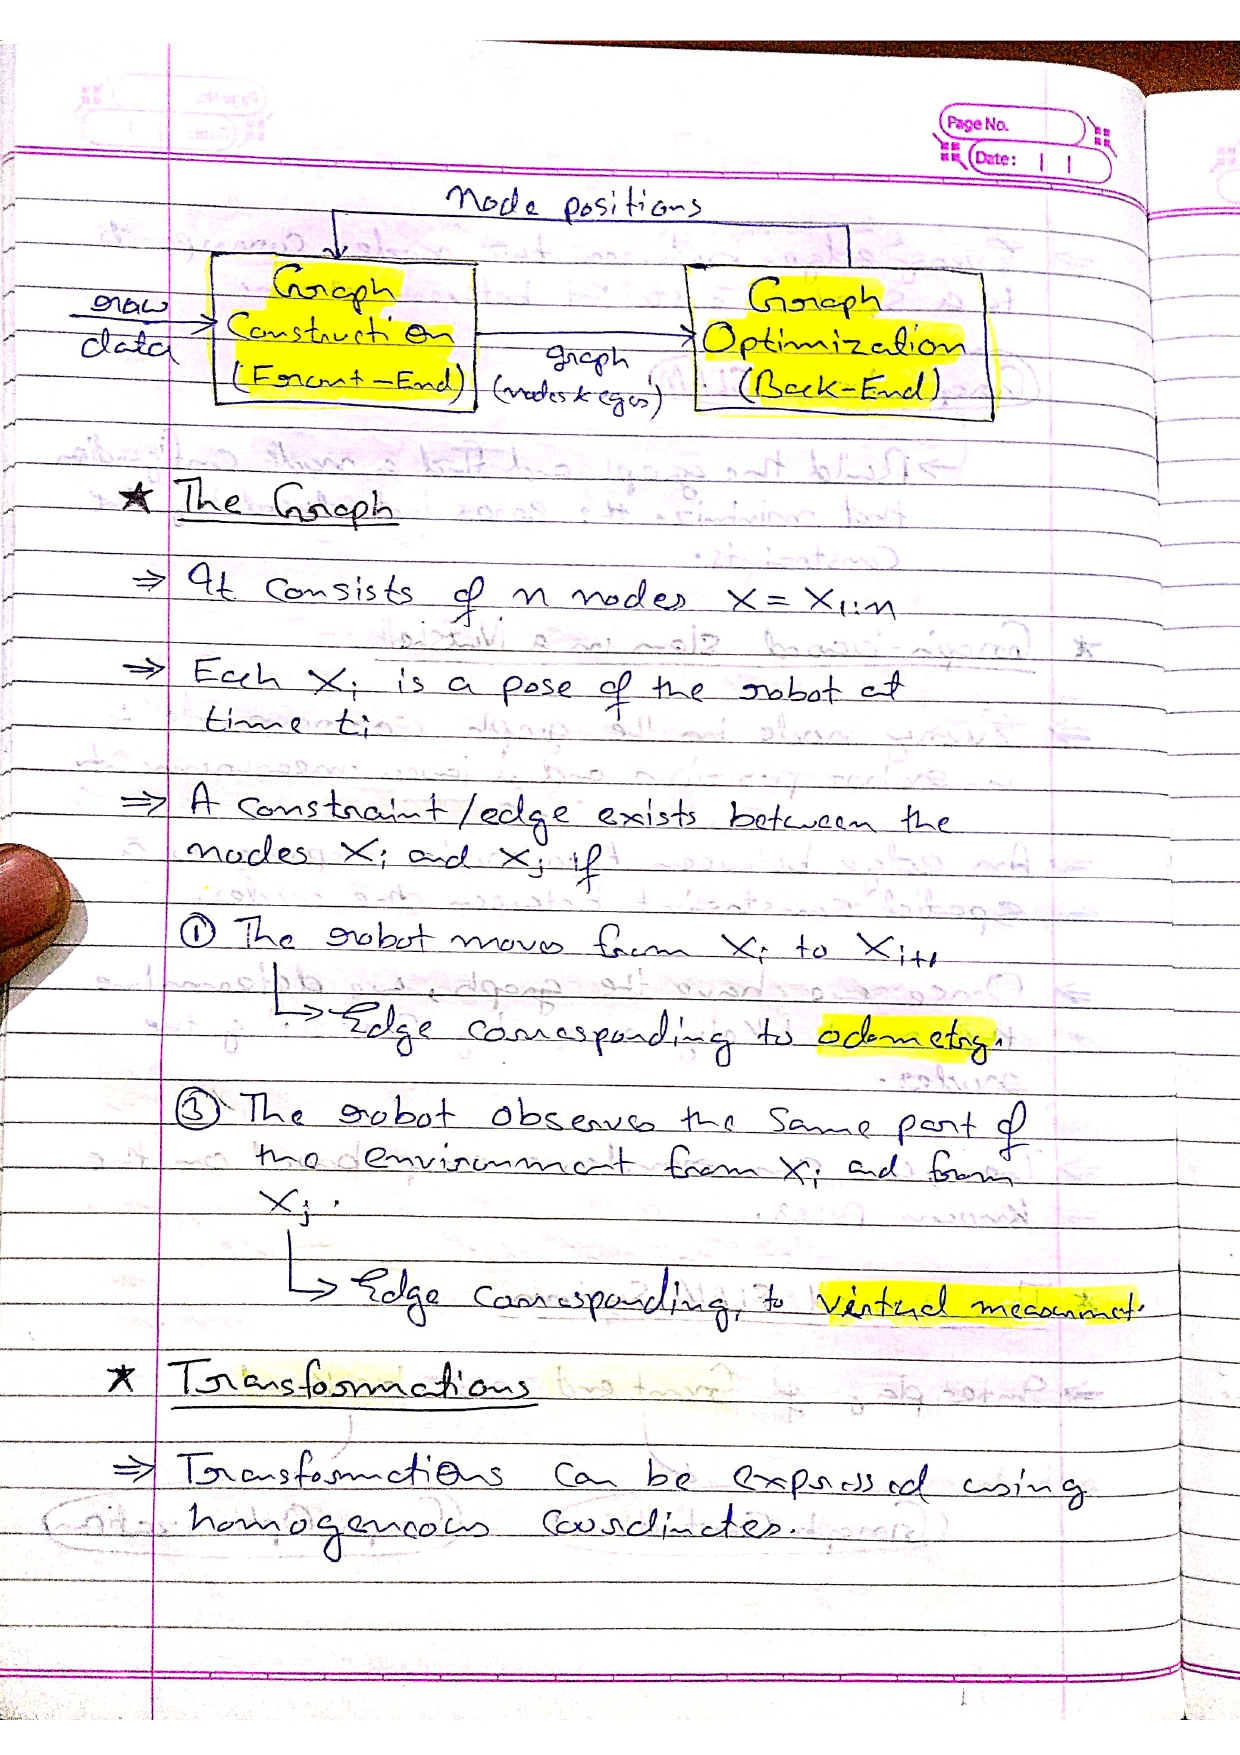 Page No.
Date:
Node positions
raw
data
Graph
Construction
(Front-End)
graph
(nodes & eges)
Graph
Optimization
(Back-End)
★ The Graph
⇒ It consists of n nodes X = X1:n
⇒ Each Xi is a pose of the robot at
time ti
⇒ A constraint/edge exists between the
nodes Xi and Xj if
① The robot moves from Xi to Xi+1
↳ Edge corresponding to odometry.
② The robot observes the same part of
the environment from Xi and from
Xj.
↳ Edge corresponding to virtual measurment.
★ Transformations
⇒ Transformations can be expressed using
homogeneous coordinates.